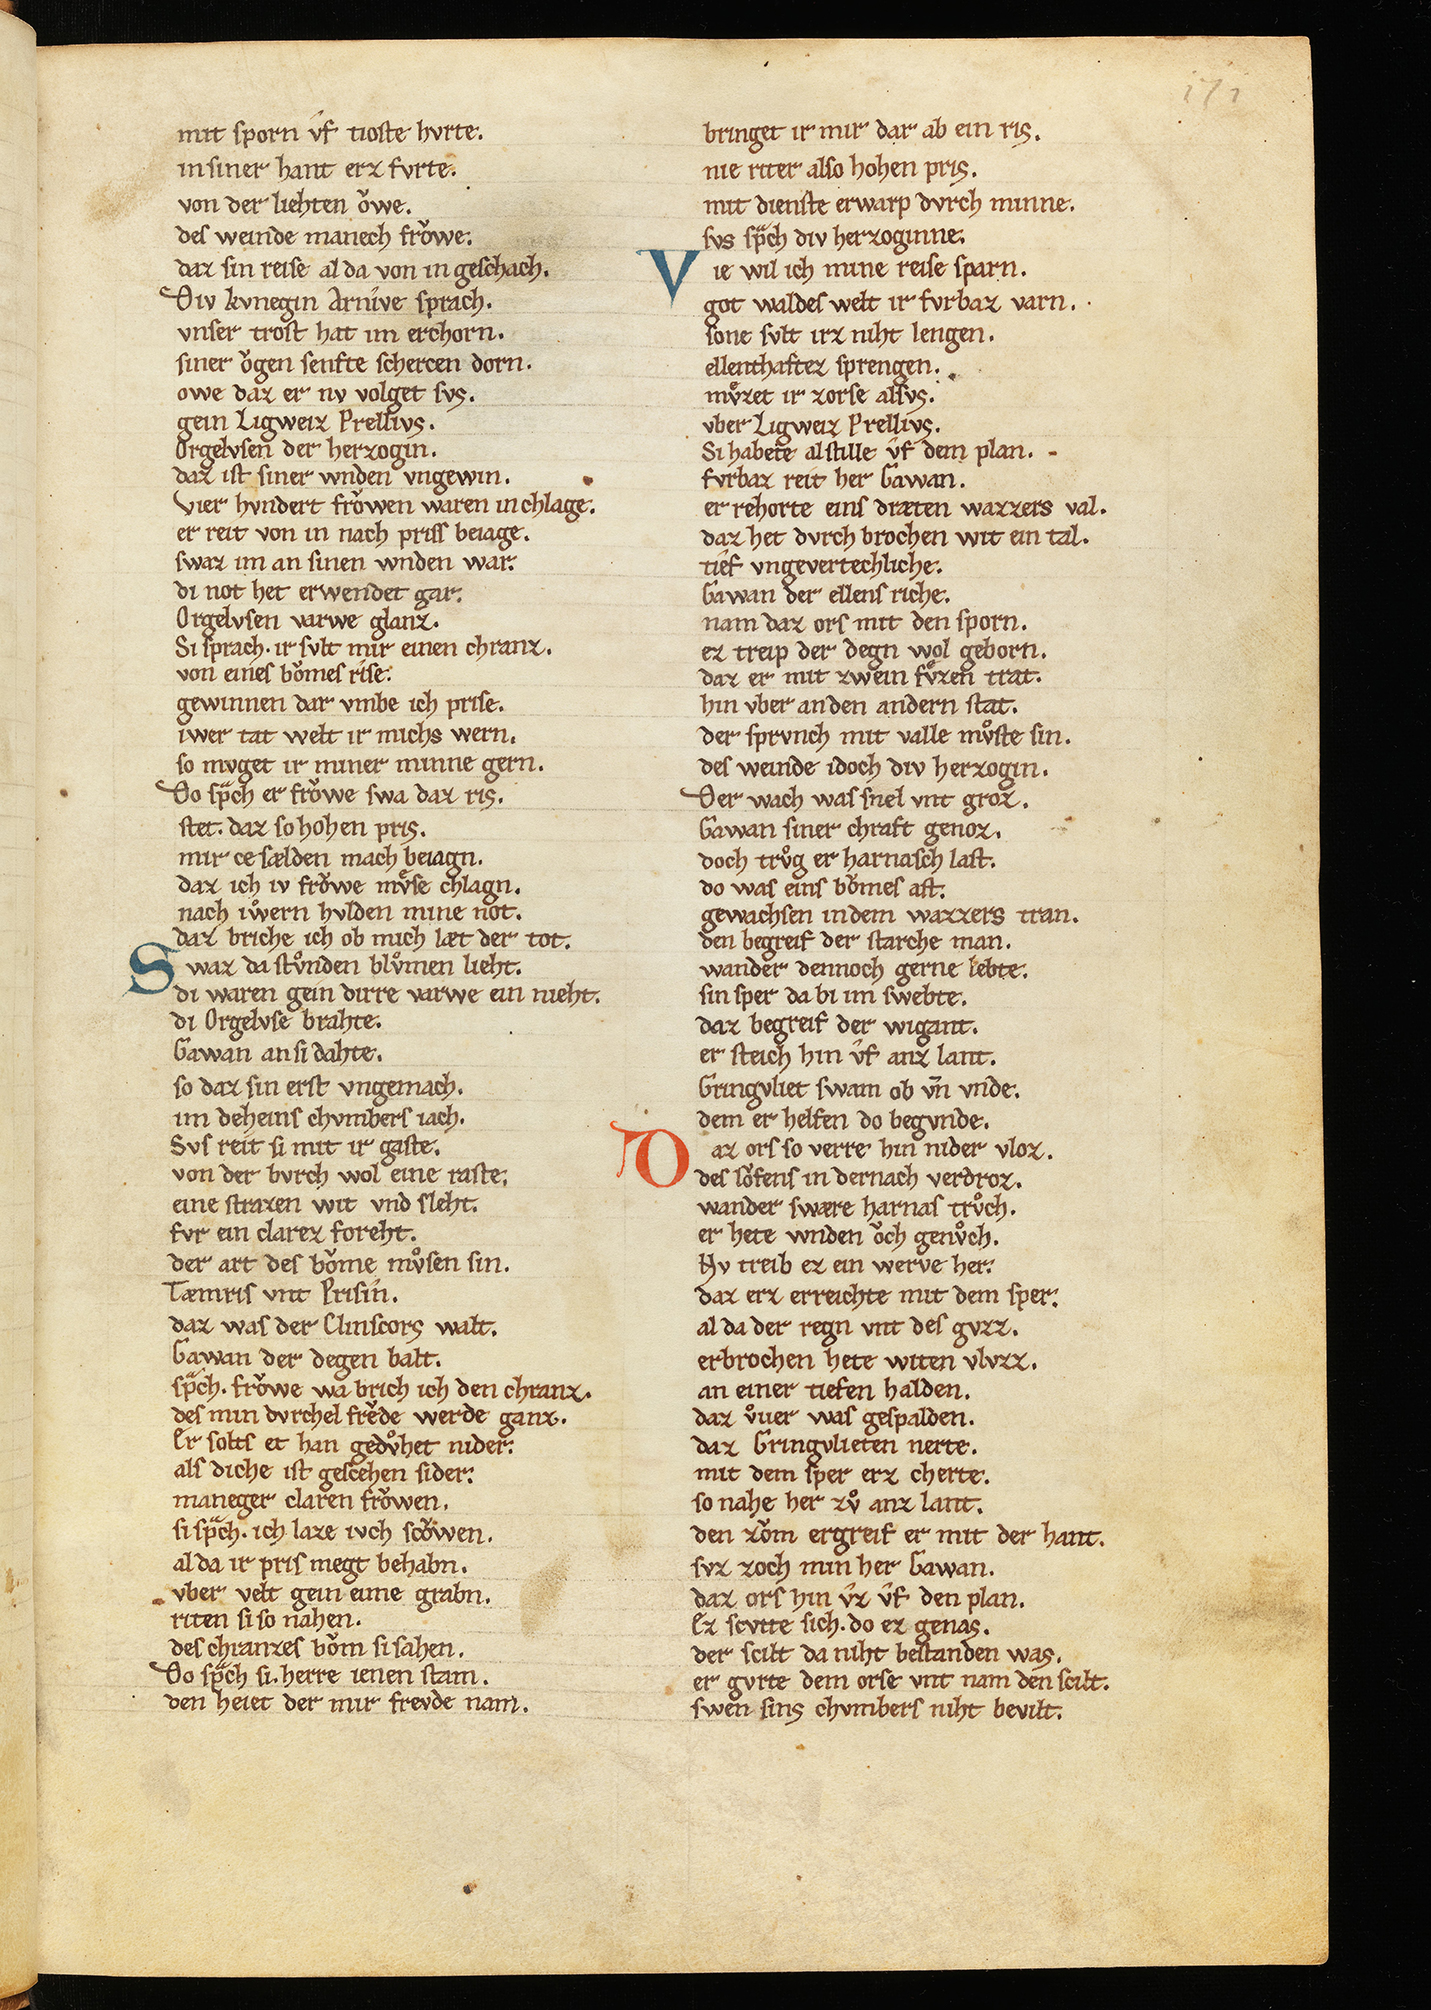 171
mit sporn v̂f tioste hvrte.
in siner hant erz fvrte.
von der liehten ǒwe.
des weinde manech frǒwe.
daz sin reise al da von in geschach.
Div kvnegin Arnive sprach.
vnser trost hat im erchorn.
siner ǒgen senfte schercen dorn.
owe daz er nv volget svs.
gein Ligweiz Prellivs.
Orgelvsen der herzogin.
daz ist siner wnden vngewin.
Vier hvndert frǒwen waren in chlage.
er reit von in nach priss beiage.
swaz im an sinen wnden war.
di not het erwendet gar.
Orgelvsen varwe glanz.
Si sprach. ir svlt mir einen chranz.
von eines bǒmes rise.
gewinnen dar vmbe ich prise.
iwer tat welt ir michs wern.
so mvget ir miner minne gern.
Do sp̃ch er frǒwe swa daz ris.
stet. daz so hohen pris.
mir ce sælden mach beiagn.
daz ich iv frǒwe mv̊se chlagn.
nach iẘern hvlden mine not.
daz briche ich ob mich læt der tot.
Swaz da stv̊nden blv̊men lieht.
di waren gein dirre varwe ein nieht.
di Orgelvse brahte.
Gawan an si dahte.
so daz sin erst vngemach.
im deheins chvmbers iach.
Svs reit si mit ir gaste.
von der bvrch wol eine raste.
eine strazen wit vnd sleht.
fvr ein clarez foreht.
der art des bǒme mv̊sen sin.
Tæmris vnt Prisin.
daz was der Clinscors walt.
Gawan der degen balt.
sp̃ch. frǒwe wa brich ich den chranz.
des min dvrchel frěde werde ganz.
Er solts et han gedv̊het nider.
als diche ist gescehen sider.
maneger claren frǒwen.
si sp̃ch. ich laze ivch scǒwen.
al da ir pris megt behabn.
vber velt gein eime grabn.
riten si so nahen.
des chranzes bǒm si sahen.
Do sp̃ch si. herre ienen stam.
den heiet der mir frevde nam.
bringet ir mir dar ab ein ris.
nie riter also hohen pris.
mit dienste erwarp dvrch minne.
svs sp̃ch div herzoginne.
Vie wil ich mine reise sparn.
got waldes welt ir fvrbaz varn.
sone svlt irz niht lengen.
ellenthaftez sprengen.
mv̊zet ir zorse alsvs.
vber Ligweiz Prellivs.
Si habete al stille v̂f dem plan.
fvrbaz reit her Gawan.
er rehorte eins dræten wazzers val.
daz het dvrch brochen wit ein tal.
tief vngevertechliche.
Gawan der ellens riche.
nam daz ors mit den sporn.
ez treip der degn wol geborn.
daz er mit zwein fv̊zen trat.
hin vber an den andern stat.
der sprvnch mit valle mv̊ste sin.
des weinde idoch div herzogin.
Der wach was snel vnt groz.
Gawan siner chraft genoz.
doch trv̊g er harnasch last.
do was eins bǒmes ast.
gewachsen in dem wazzers tran.
den begreif der starche man.
wander dennoch gerne lebte.
sin sper da bi im swebte.
daz begreif der wigant.
er steich hin v̂f anz lant.
Gringvliet swam ob vñ vnde.
dem er helfen do begvnde.
Daz ors so verre hin nider vloz.
des lǒfens in dernach verdroz.
wander swære harnas trv̊ch.
er hete wnden ǒch genv̊ch.
Nv treib ez ein werve her.
daz erz erreichte mit dem sper.
al da der regn vnt des gvzz.
erbrochen hete witen vlvzz.
an einer tiefen halden.
daz v̊uer was gespalden.
daz Gringvlieten nerte.
mit dem sper erz cherte.
so nahe her zv̊ anz lant.
den zǒm ergreif er mit der hant.
svz zoch min her Gawan.
daz ors hin v̂z v̂f den plan.
Ez scvtte sich. do ez genas.
der scilt da niht bestanden was.
er gvrte dem orse vnt nam den scilt.
swen sins chvmbers niht bevilt.